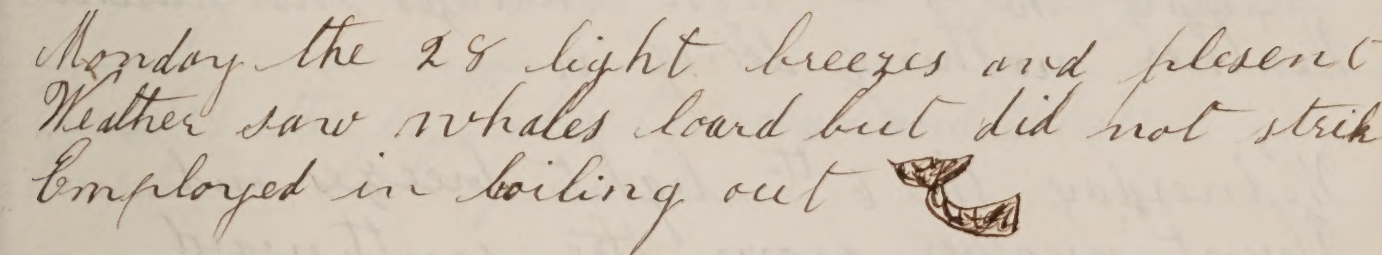 Monday the 28 light breezes and plesent
Weather saw whales loard but did not strik
Employed in boiling out